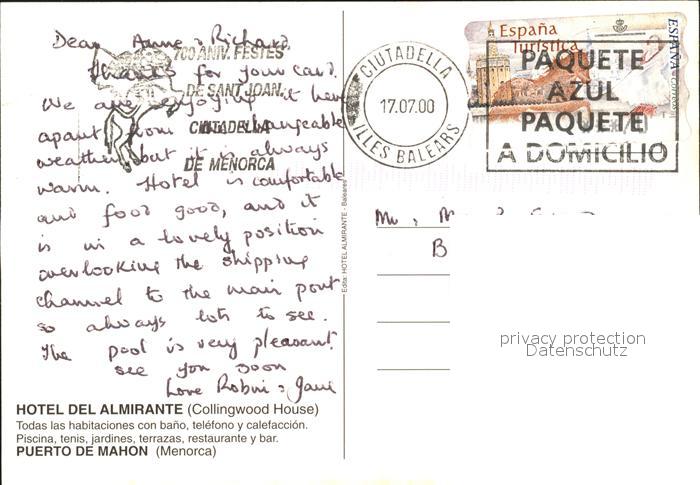 Dear Anne & Richard,
Thanks for your card.
We are enjoying it here
apart from the changeable
weather, but it is always
warm. Hotel is comfortable
and food good, and it
is in a lovely position
overlooking the shipping
channel to the main port
so always lots to see.
The pool is very pleasant.
See you soon
Love Robin & Jane
700 ANIV. FESTES
DE SANT JOAN
CIUTADELLA
DE MENORCA
CIUTADELLA
17.07.00
ILLES BALEARS
España
Turística
ESPAÑA
CORREOS
PAQUETE
AZUL
PAQUETE
A DOMICILIO
Edita: HOTEL ALMIRANTE - Baleares
B
privacy protection
Datenschutz
HOTEL DEL ALMIRANTE (Collingwood House)
Todas las habitaciones con baño, teléfono y calefacción.
Piscina, tenis, jardines, terrazas, restaurante y bar.
PUERTO DE MAHON (Menorca)